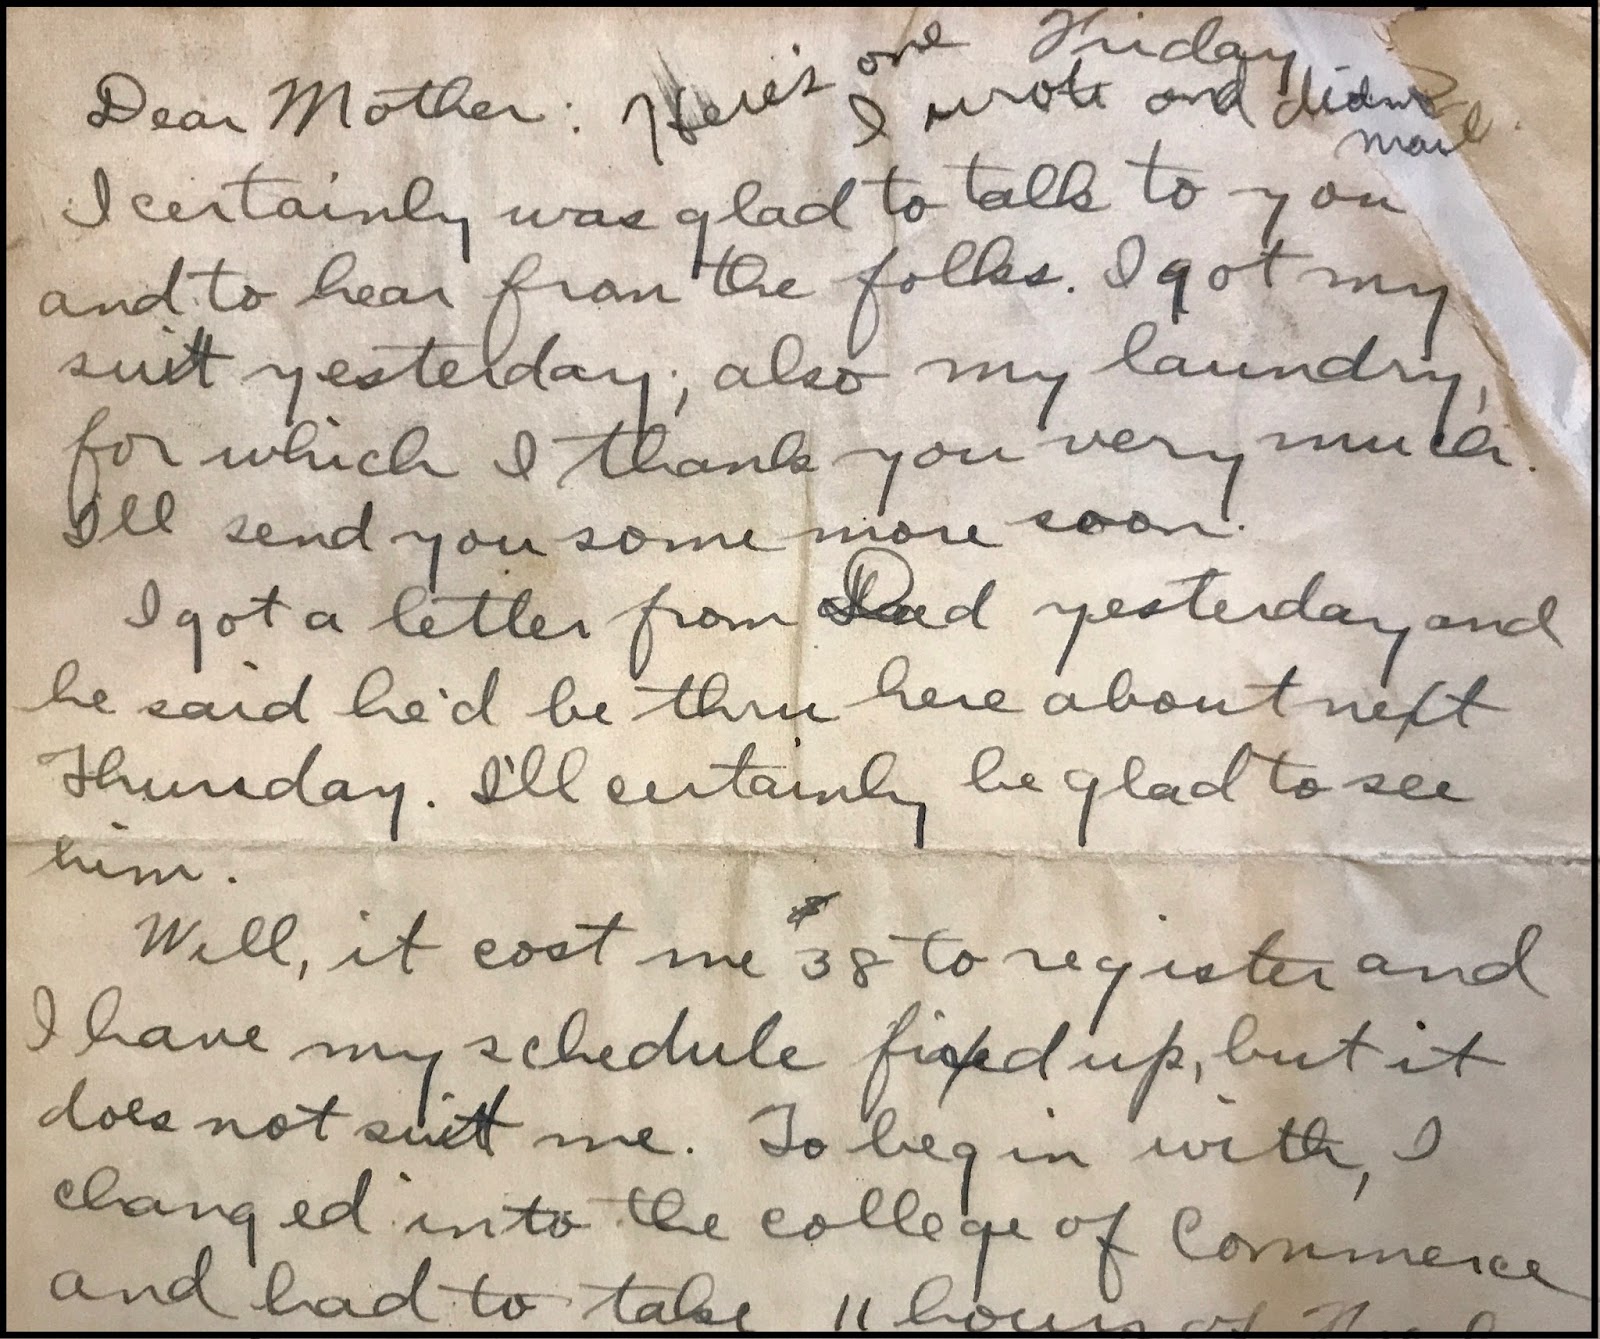 Friday
Dear Mother: Here's one I wrote and didn't mail.
I certainly was glad to talk to you
and to hear from the folks. I got my
suit yesterday; also my laundry,
for which I thank you very much.
I'll send you some more soon.
I got a letter from Dad yesterday and
he said he'd be thru here about next
Thursday. I'll certainly be glad to see
him.
Well, it cost me $38 to register and
I have my schedule fixed up, but it
does not suit me. To begin with, I
changed into the college of Commerce
and had to take 11 hours of